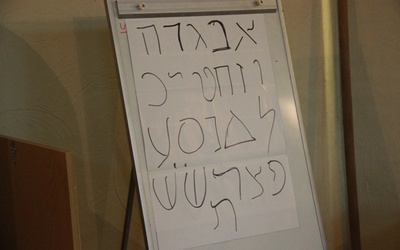 אבגדה
וזחטיכ
למנסע
פצקרשׁשׂ
ת